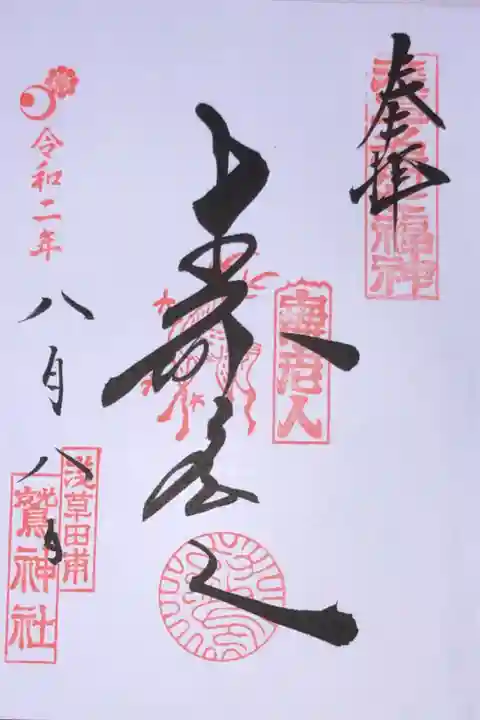 奉拝
浅草名所七福神
寿老人
壽老人
令和二年
八月八日
浅草田甫
鷲神社